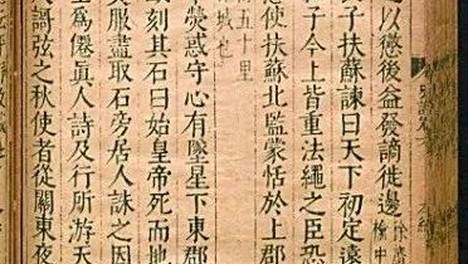 之以懲後益發謫徙邊
徐廣
榆中
子扶蘇諫曰天下初定遠
子今上皆重法繩之臣恐
使扶蘇北監蒙恬於上郡
五十里
城也
熒惑守心有墜星下東郡
刻其石曰始皇帝死而地
服盡取石旁居人誅之因
爲僊眞人詩及行所游天
謌弦之秋使者從關東夜